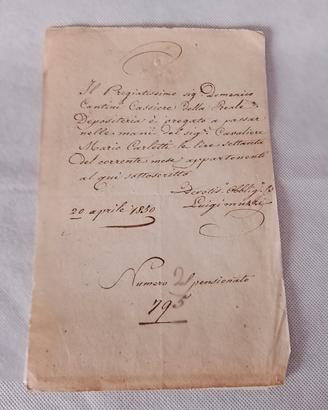 Il Pregiatissimo sig. Domenico
Cantini Cassiere della Reale
Depositeria è pregato a passar
nelle mani del sig. Cavaliere
Mario Carletti le lire settanta
del corrente mese appartenenti
al qui sottoscritto
Devotis. Obblig.
20 aprile 1850
Luigi
Numero del pensionato
795